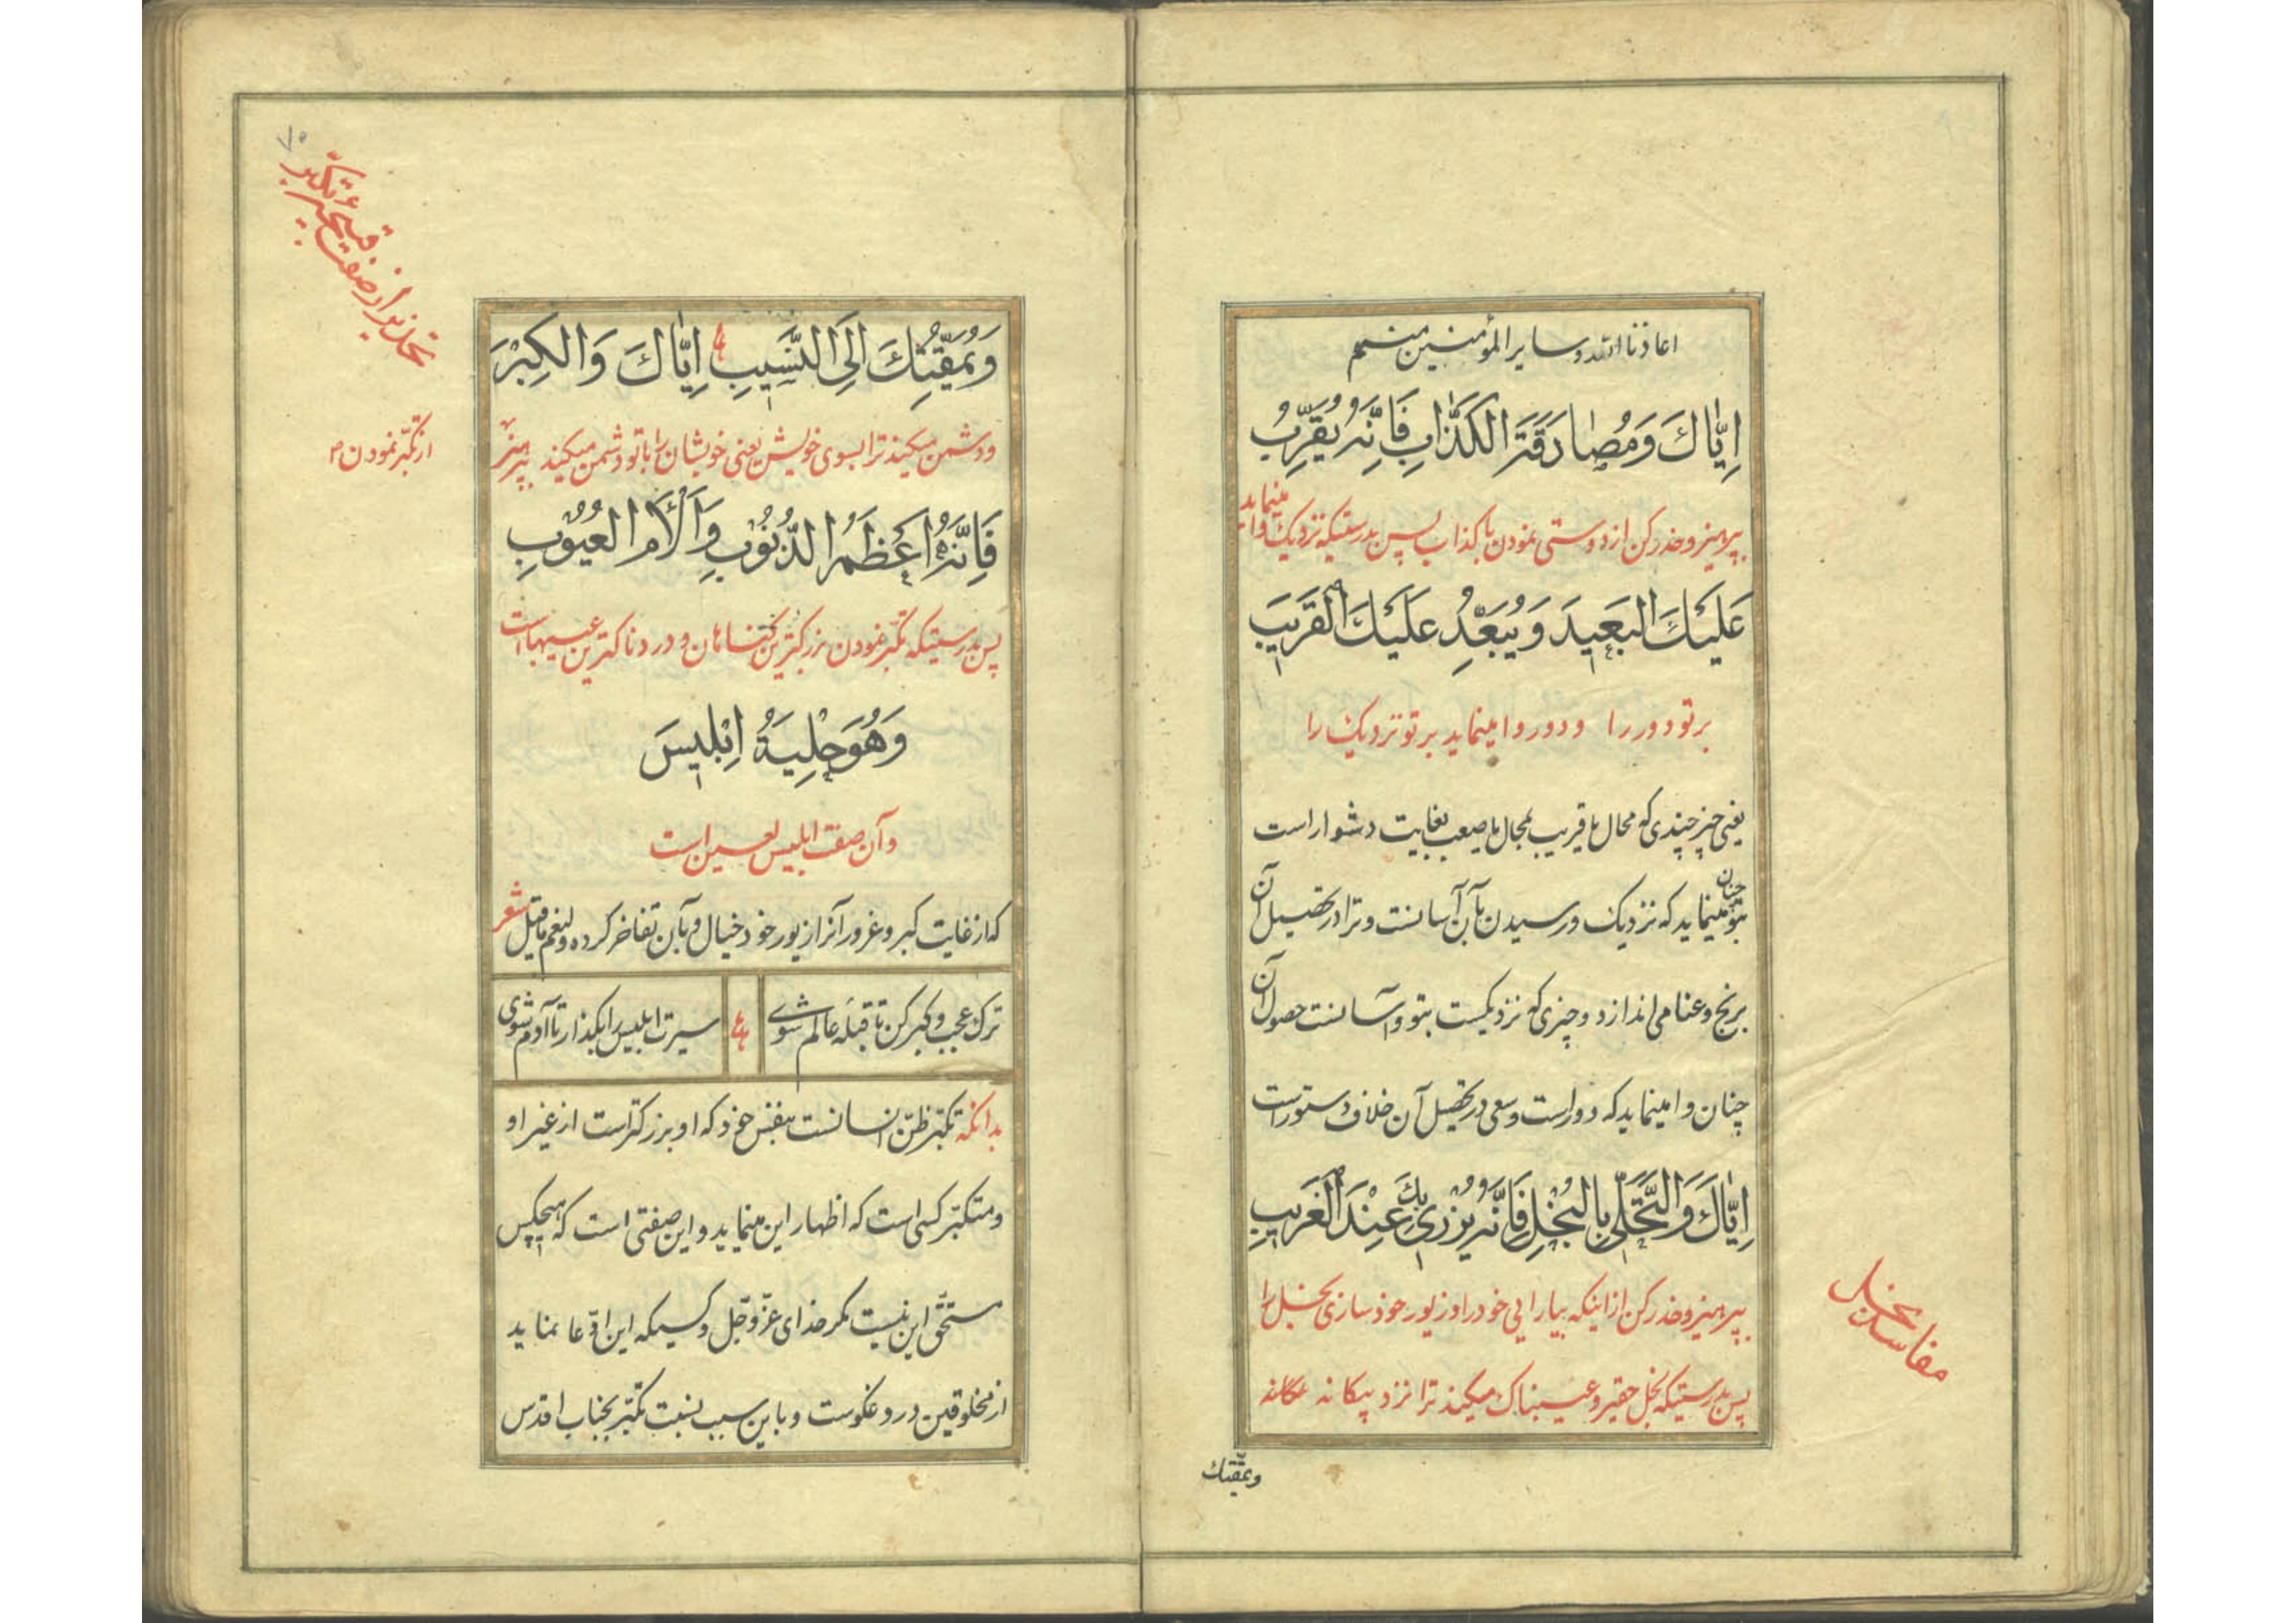 اعاذنا الله و سایر المؤمنین منهم
اِیّاكَ وَمُصٰادَقَةَ الكَذّابِ فَاِنَّهُ یُقَرِّبُ
بپرهیز و حذر کن از دوستی نمودن با کذاب پس بدرستیکه نزدیک وا مینماید
عَلَیْكَ البَعِیدَ وَ یُبَعِّدُ عَلَیْكَ القَرِیبَ
بر تو دور را و دور وا مینماید بر تو نزدیک را
یعنی چیز چندی که محال یا قریب بمحال یا صعب بغایت دشوار است
چنان بتو مینماید که نزدیک و رسیدن بآن آسانست و ترا در تحصیل آن
برنج و عنا می اندازد و چیزی که نزدیکست بتو و آسانست حصول آن
چنان وا مینماید که دور است و سعی در تحصیل آن خلاف دستور است
اِیّاكَ وَ التَّحَلّیَ بِالبُخْلِ فَاِنَّهُ یُزْرِی بِكَ عِنْدَ الغَرِیبِ
بپرهیز و حذر کن از اینکه بیارایی خود را و زیور خود سازی بخل را
پس بدرستیکه بخل حقیر و عیبناک میکند ترا نزد بیکانه
مفاسد بخل
و یمقّتك
٧٠
تحذیر از صفت
از تکبّر نمودن
وَ یُمَقِّتُكَ اِلَی النَّسِیبِ اِیّاكَ وَالكِبْرَ
و دشمن میکند ترا بسوی خویش یعنی خویشان را با تو دشمن میکند بپرهیز
فَاِنَّهُ اَعْظَمُ الذُّنُوبِ وَ اَلْأَمُ العُیُوبِ
پس بدرستیکه تکبّر نمودن بزرکترین کناهان و دردناکترین عیبهاست
وَهُوَ حِلْیَةُ اِبْلِیسَ
و آن صفت ابلیس لعین است
که از غایت کبر و غرور آنرا زیور خود خیال و بآن تفاخر کرده و لنعم ماقیل شعر
ترک عجب و کبر کن تا قبلهٔ عالم شوی سیرت ابلیس را بکذار تا آدم شوی
بدانکه تکبّر ظنّ انسانست بنفس خود که او بزرکتر است از غیر او
و متکبّر کسی است که اظهار این مینماید و این صفتی است که هیچکس
مستحقّ این نیست مکر خدای عزّ و جلّ و کسیکه این ادّعا نماید
از مخلوقین دروغکوست و باین سبب نسبت تکبّر بجناب اقدس